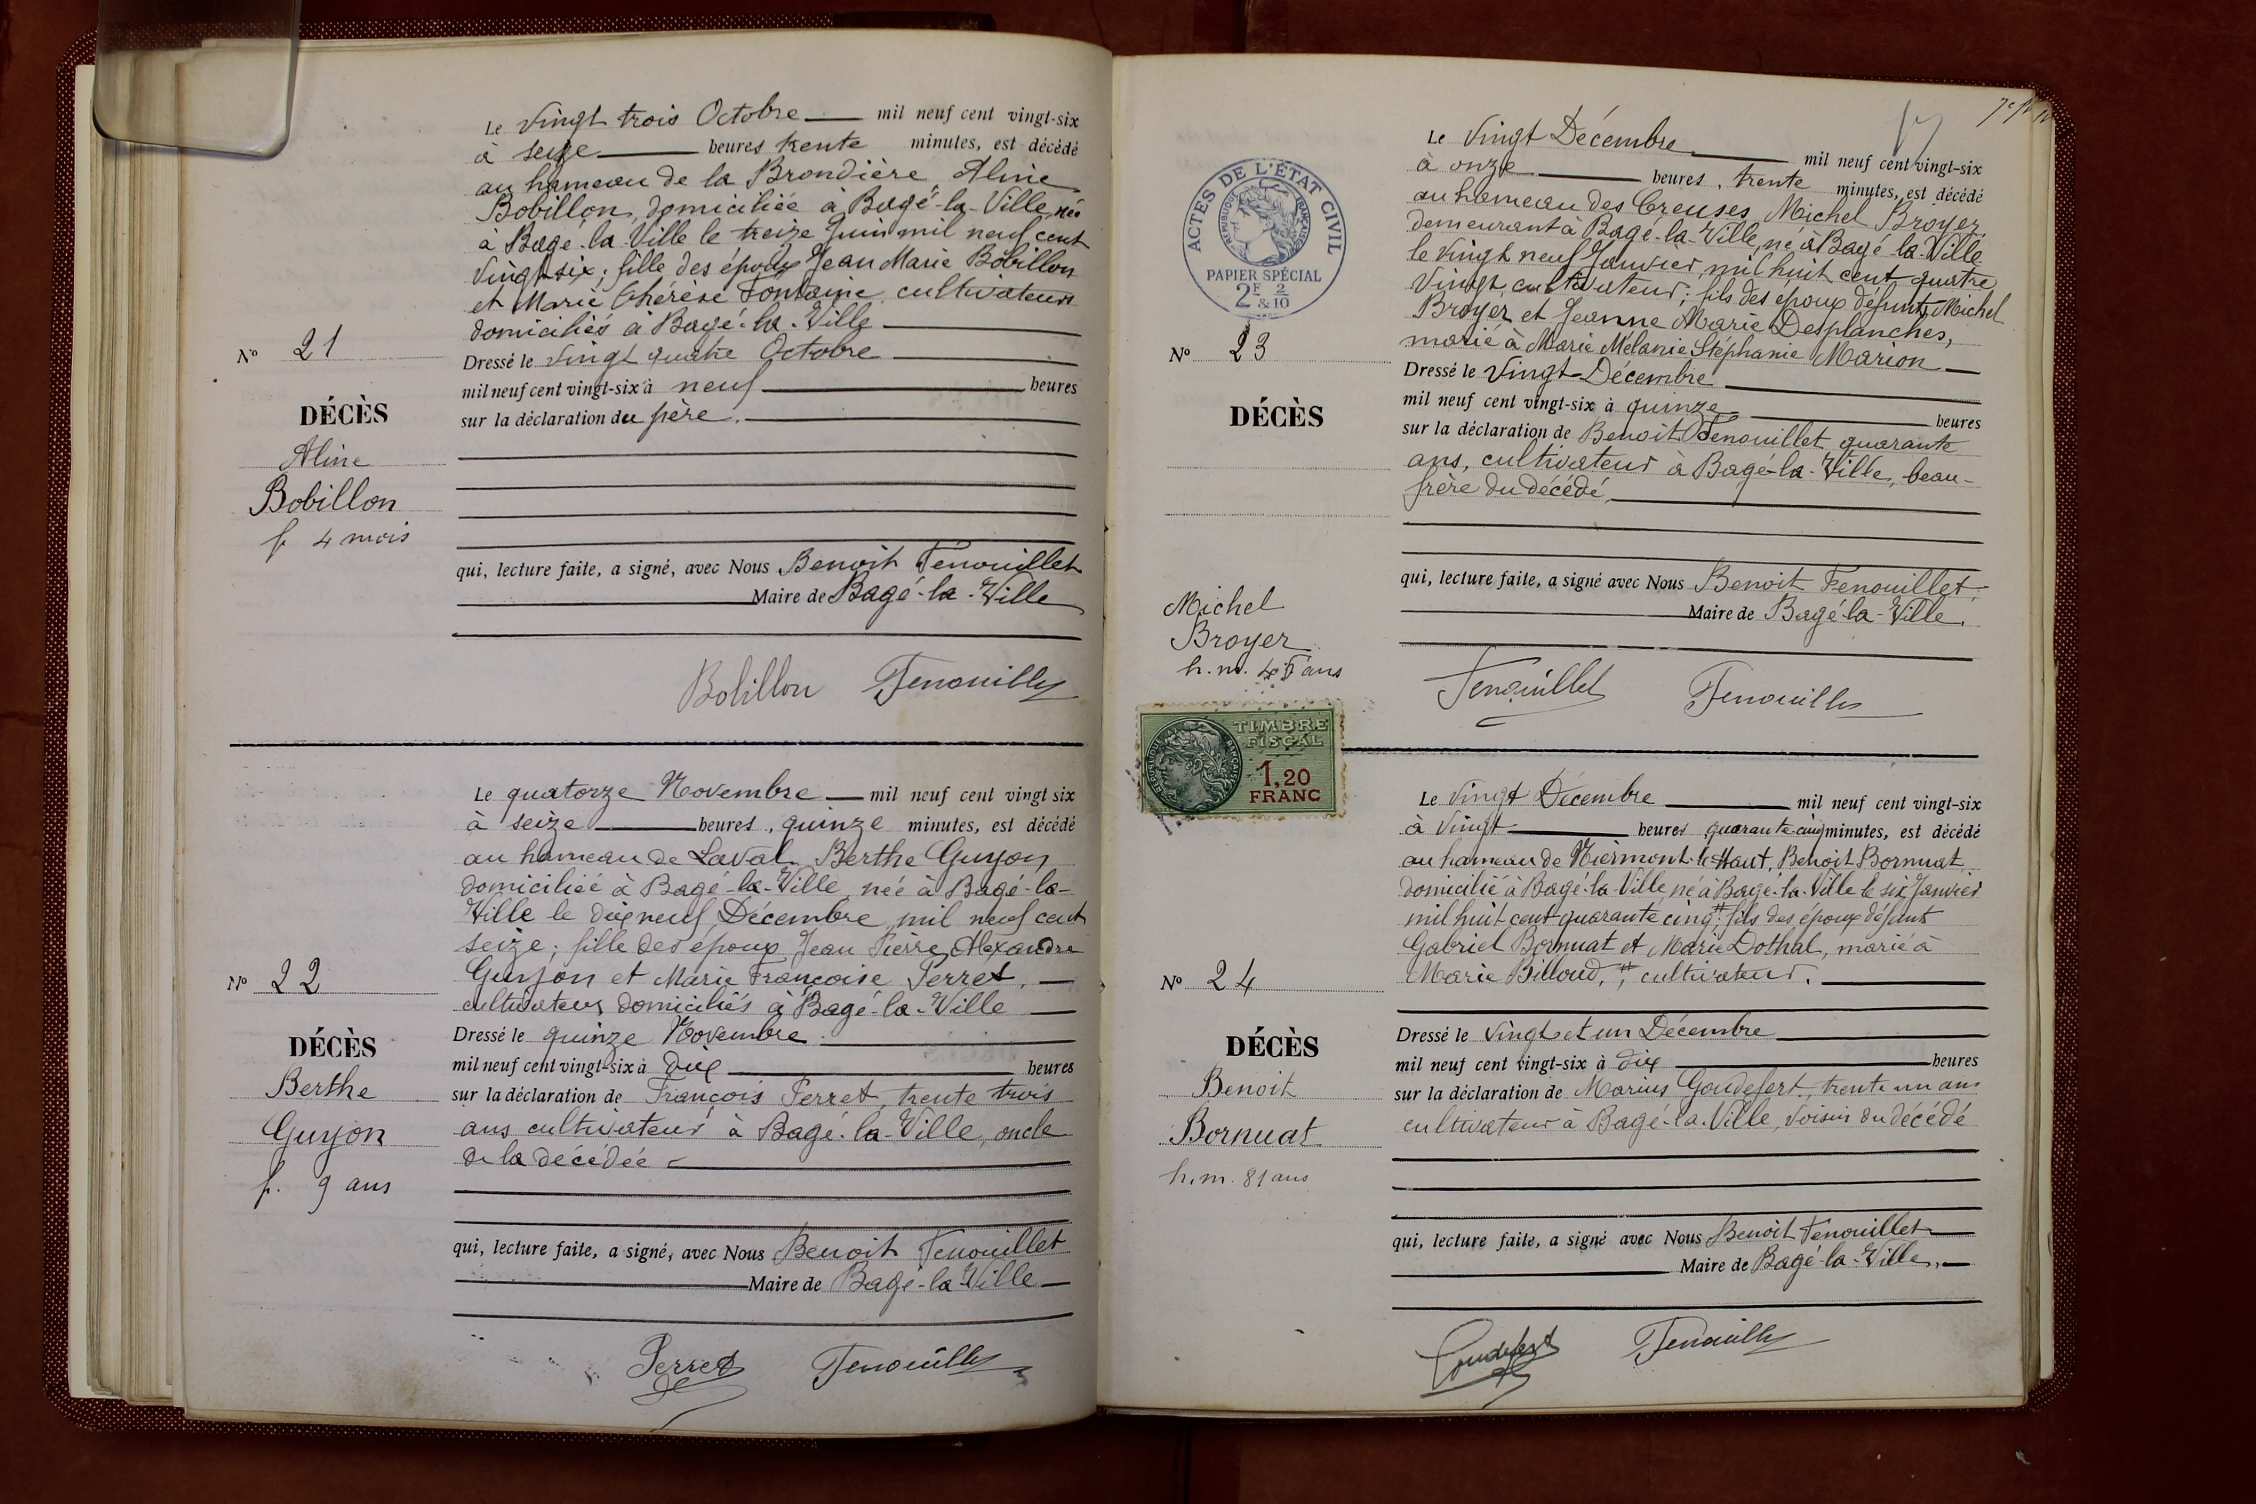 Le vingt trois Octobre mil neuf cent vingt-six
à seize heures trente minutes, est décédé
au hameau de la Brondière Aline
Bobillon, domiciliée à Bagé-la-Ville, née
à Bagé-la-Ville le treize Juin mil neuf cent
vingt-six; fille des époux Jean Marie Bobillon
et Marie Thérèse Fontaine, cultivateurs
domiciliés à Bagé-la-Ville
Dressé le vingt quatre Octobre
mil neuf cent vingt-six à neuf heures
sur la déclaration du père.
qui, lecture faite, a signé, avec Nous Benoit Fenouillet
Maire de Bagé-la-Ville
Bobillon Fenouillet
No 21
DÉCÈS
Aline
Bobillon
f. 4 mois
Le quatorze Novembre mil neuf cent vingt six
à seize heures, quinze minutes, est décédé
au hameau de Laval Berthe Guyon
domiciliée à Bagé-la-Ville, née à Bagé-la-
Ville le dix neuf Décembre mil neuf cent
seize; fille des époux Jean Pierre Alexandre
Guyon et Marie Françoise Perret,
cultivateurs domiciliés à Bagé-la-Ville
Dressé le quinze Novembre
mil neuf cent vingt-six à dix heures
sur la déclaration de François Perret, trente trois
ans cultivateur à Bagé-la-Ville, oncle
de la décédée
qui, lecture faite, a signé, avec Nous Benoit Fenouillet
Maire de Bagé-la-Ville
Perret Fenouillet
No 22
DÉCÈS
Berthe
Guyon
f. 9 ans
ACTES DE L'ÉTAT CIVIL
RÉPUBLIQUE FRANÇAISE
PAPIER SPÉCIAL
2F 2
& 10
Le vingt Décembre mil neuf cent vingt-six
à onze heures, trente minutes, est décédé
au hameau des Creuses Michel Broyer,
demeurant à Bagé-la-Ville, né à Bagé-la-Ville
le vingt neuf Janvier, mil huit cent quatre
vingt, cultivateur; fils des époux défunts Michel
Broyer et Jeanne Marie Desplanches,
marié à Marie Mélanie Stéphanie Marion
Dressé le vingt Décembre
mil neuf cent vingt-six à quinze heures
sur la déclaration de Benoît Fenouillet, quarante
ans, cultivateur à Bagé-la-Ville, beau-
frère du décédé,
qui, lecture faite, a signé avec Nous Benoit Fenouillet,
Maire de Bagé-la-Ville.
Fenouillet Fenouillet
No 23
DÉCÈS
Michel
Broyer
h. m. ans
TIMBRE
FISCAL
RÉPUBLIQUE FRANÇAISE
1,20
FRANC
Le vingt Décembre mil neuf cent vingt-six
à vingt heures quarante-cinq minutes, est décédé
au hameau de Niermont-le-Haut, Benoit Bornuat
domicilié à Bagé-la-Ville, né à Bagé-la-Ville le six Janvier
mil huit cent quarante cinq; fils des époux défunts
Gabriel Bornuat et Marie Dothal, marié à
Marie Billoud, cultivateur.
Dressé le vingt et un Décembre
mil neuf cent vingt-six à dix heures
sur la déclaration de Marius Goudefert, trente un ans
cultivateur à Bagé-la-Ville, voisin du décédé
qui, lecture faite, a signé avec Nous Benoit Fenouillet
Maire de Bagé-la-Ville,
Goudefert Fenouillet
No 24
DÉCÈS
Benoit
Bornuat
h. m. 81 ans